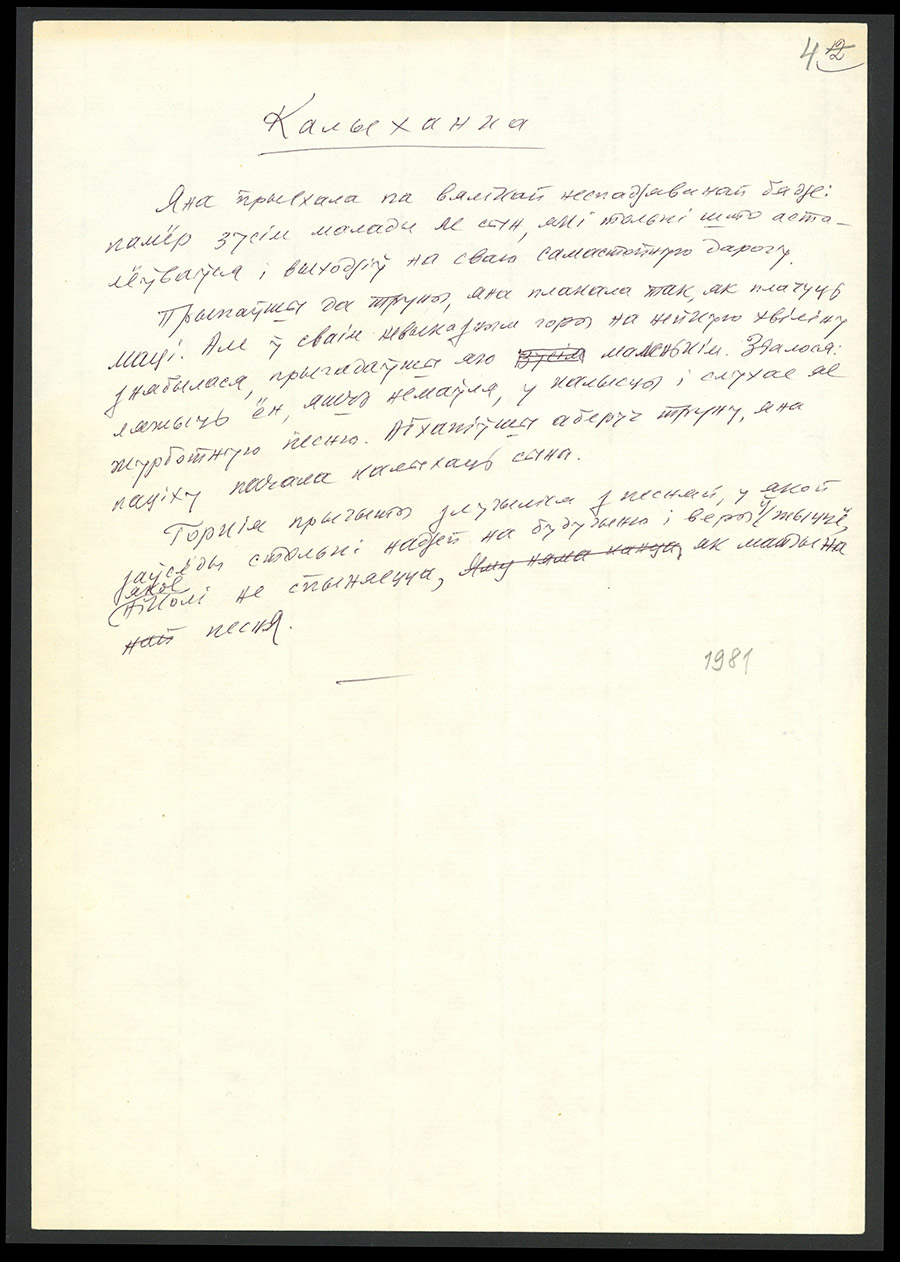 42
Калыханка
Яна прыехала па вялікай неспадзяванай бядзе:
памёр зусім малады яе сын, які толькі што аста-
лёўваўся і выходзіў на сваю самастойную дарогу.
Прыпаўшы да труны, яна плакала так, як плачуць
маці. Але ў сваім невыказным горы на нейкую хвіліну
знябылася, прыгадаўшы яго зусім маленькім. Здалося:
ляжыць ён, яшчэ немаўля, у калысцы і слухае яе
журботную песню. Абхапіўшы аберуч труну, яна
паціху пачала калыхаць сына.
Горкія прычыты злучыліся з песняй, у якой
заўсёды столькі надзей на будучыню і веры ў жыццё,
якое
ніколі не спыняецца, Яму няма канца, як матчына
най песня.
1981